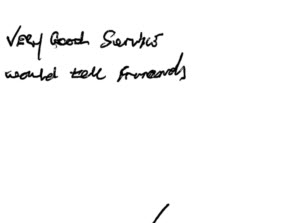 Very Good Service
would tell friends